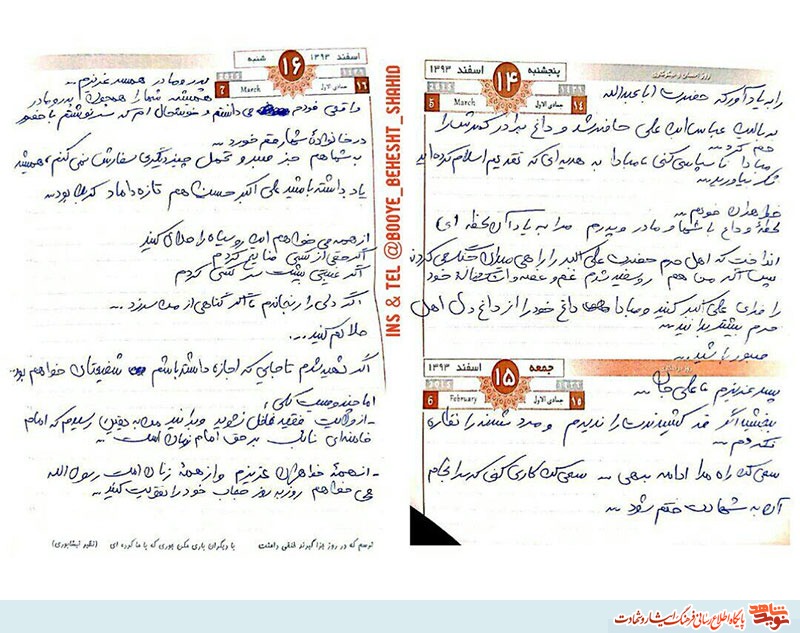 روز احسان و نیکوکاری
پنجشنبه ۱۴ اسفند ۱۳۹۳
5 March جمادی الاول ۱۴
را به یاد آور که حضرت اباعبدالله
به بالین عباس است علی حاضر شد و داغ برادر کمرش را
خم کرد
مبادا ناسپاسی کنی، مبادا به هدیه ای که تقدیم اسلام کرده اید
شکر نیاورید
خواهران خوبم
لحظهٔ وداع با شما و مادر و پدرم مرا به یاد آن لحظه ای
انداخت که اهل حرم حضرت علی اکبر را راهی میدان جنگ می کردند
پس اگر من هم روسفید شدم غم و غصه خود
را فدای علی اکبر کنید و مبادا داغ خود را از داغ دل اهل
حرم بیشتر بدانید
صبور باشید
جمعه ۱۵ اسفند ۱۳۹۳
6 February جمادی الاول ۱۵
پسر عزیزم علی جان
ببخش اگر قد کشیدنت را ندیدم و مرد شدنت را نظاره
نکردم
سعی کن راه مرا ادامه بدهی سعی کن کاری کنی که سرانجام
آن به شهادت ختم شود
شنبه ۱۶ اسفند ۱۳۹۳
7 March جمادی الاول ۱۶
پدر و مادر همسر عزیزم
همیشه شما را همچون پدر و مادر
واقعی خودم می دانستم و خوشحال
در خانوادهٔ شما رقم خورد
به شما هم جز صبر و تحمل چیز دیگری سفارش نمی کنم، همیشه
یاد داشته باشید علی اکبر حسین هم تازه داماد کربلا بود
از همه می خواهم این روسیاه را حلال کنید
اگر حقی از کسی ضایع کردم
اگر غیبتی پشت سر کسی کردم
اگر دلی را رنجاندم تا اگر گناهی از من سر زد
حلالم کنید...
اگر شهید شدم تا جایی که اجازه داشته باشم شفیعتان خواهم بود
اما چند وصیت کلی:
- از ولایت فقیه غافل نشوید و بدانید من به یقین رسیدم که امام
خامنه ای نائب بر حق امام زمان است
- از همهٔ خواهران عزیزم و از همهٔ زنان امت رسول الله
می خواهم روز به روز حجاب خود را تقویت کنید
ترسم که در روز جزا گیرند خلقی دامنت با دیگران یاری مکن جوری که با ما کرده ای (نظیر نیشابوری)
INS & TEL @BOOYE_BEHESHT_SHAHID
نوید شاهد
پایگاه اطلاع رسانی فرهنگ ایثار و شهادت